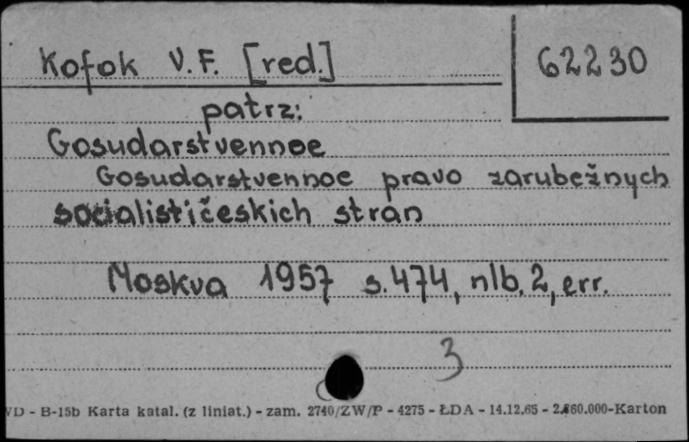 Kofok V. F. [red.]
62230
patrz:
Gosudarstvennoe
Gosudarstvennoe pravo zarubežnych
socialističeskich stran
Moskva 1957 s. 474, nlb. 2, err.
3
VD - B-15b Karta katal. (z liniat.) - zam. 2740/ZW/P - 4275 - ŁDA - 14.12.65 - 2.860.000-Karton